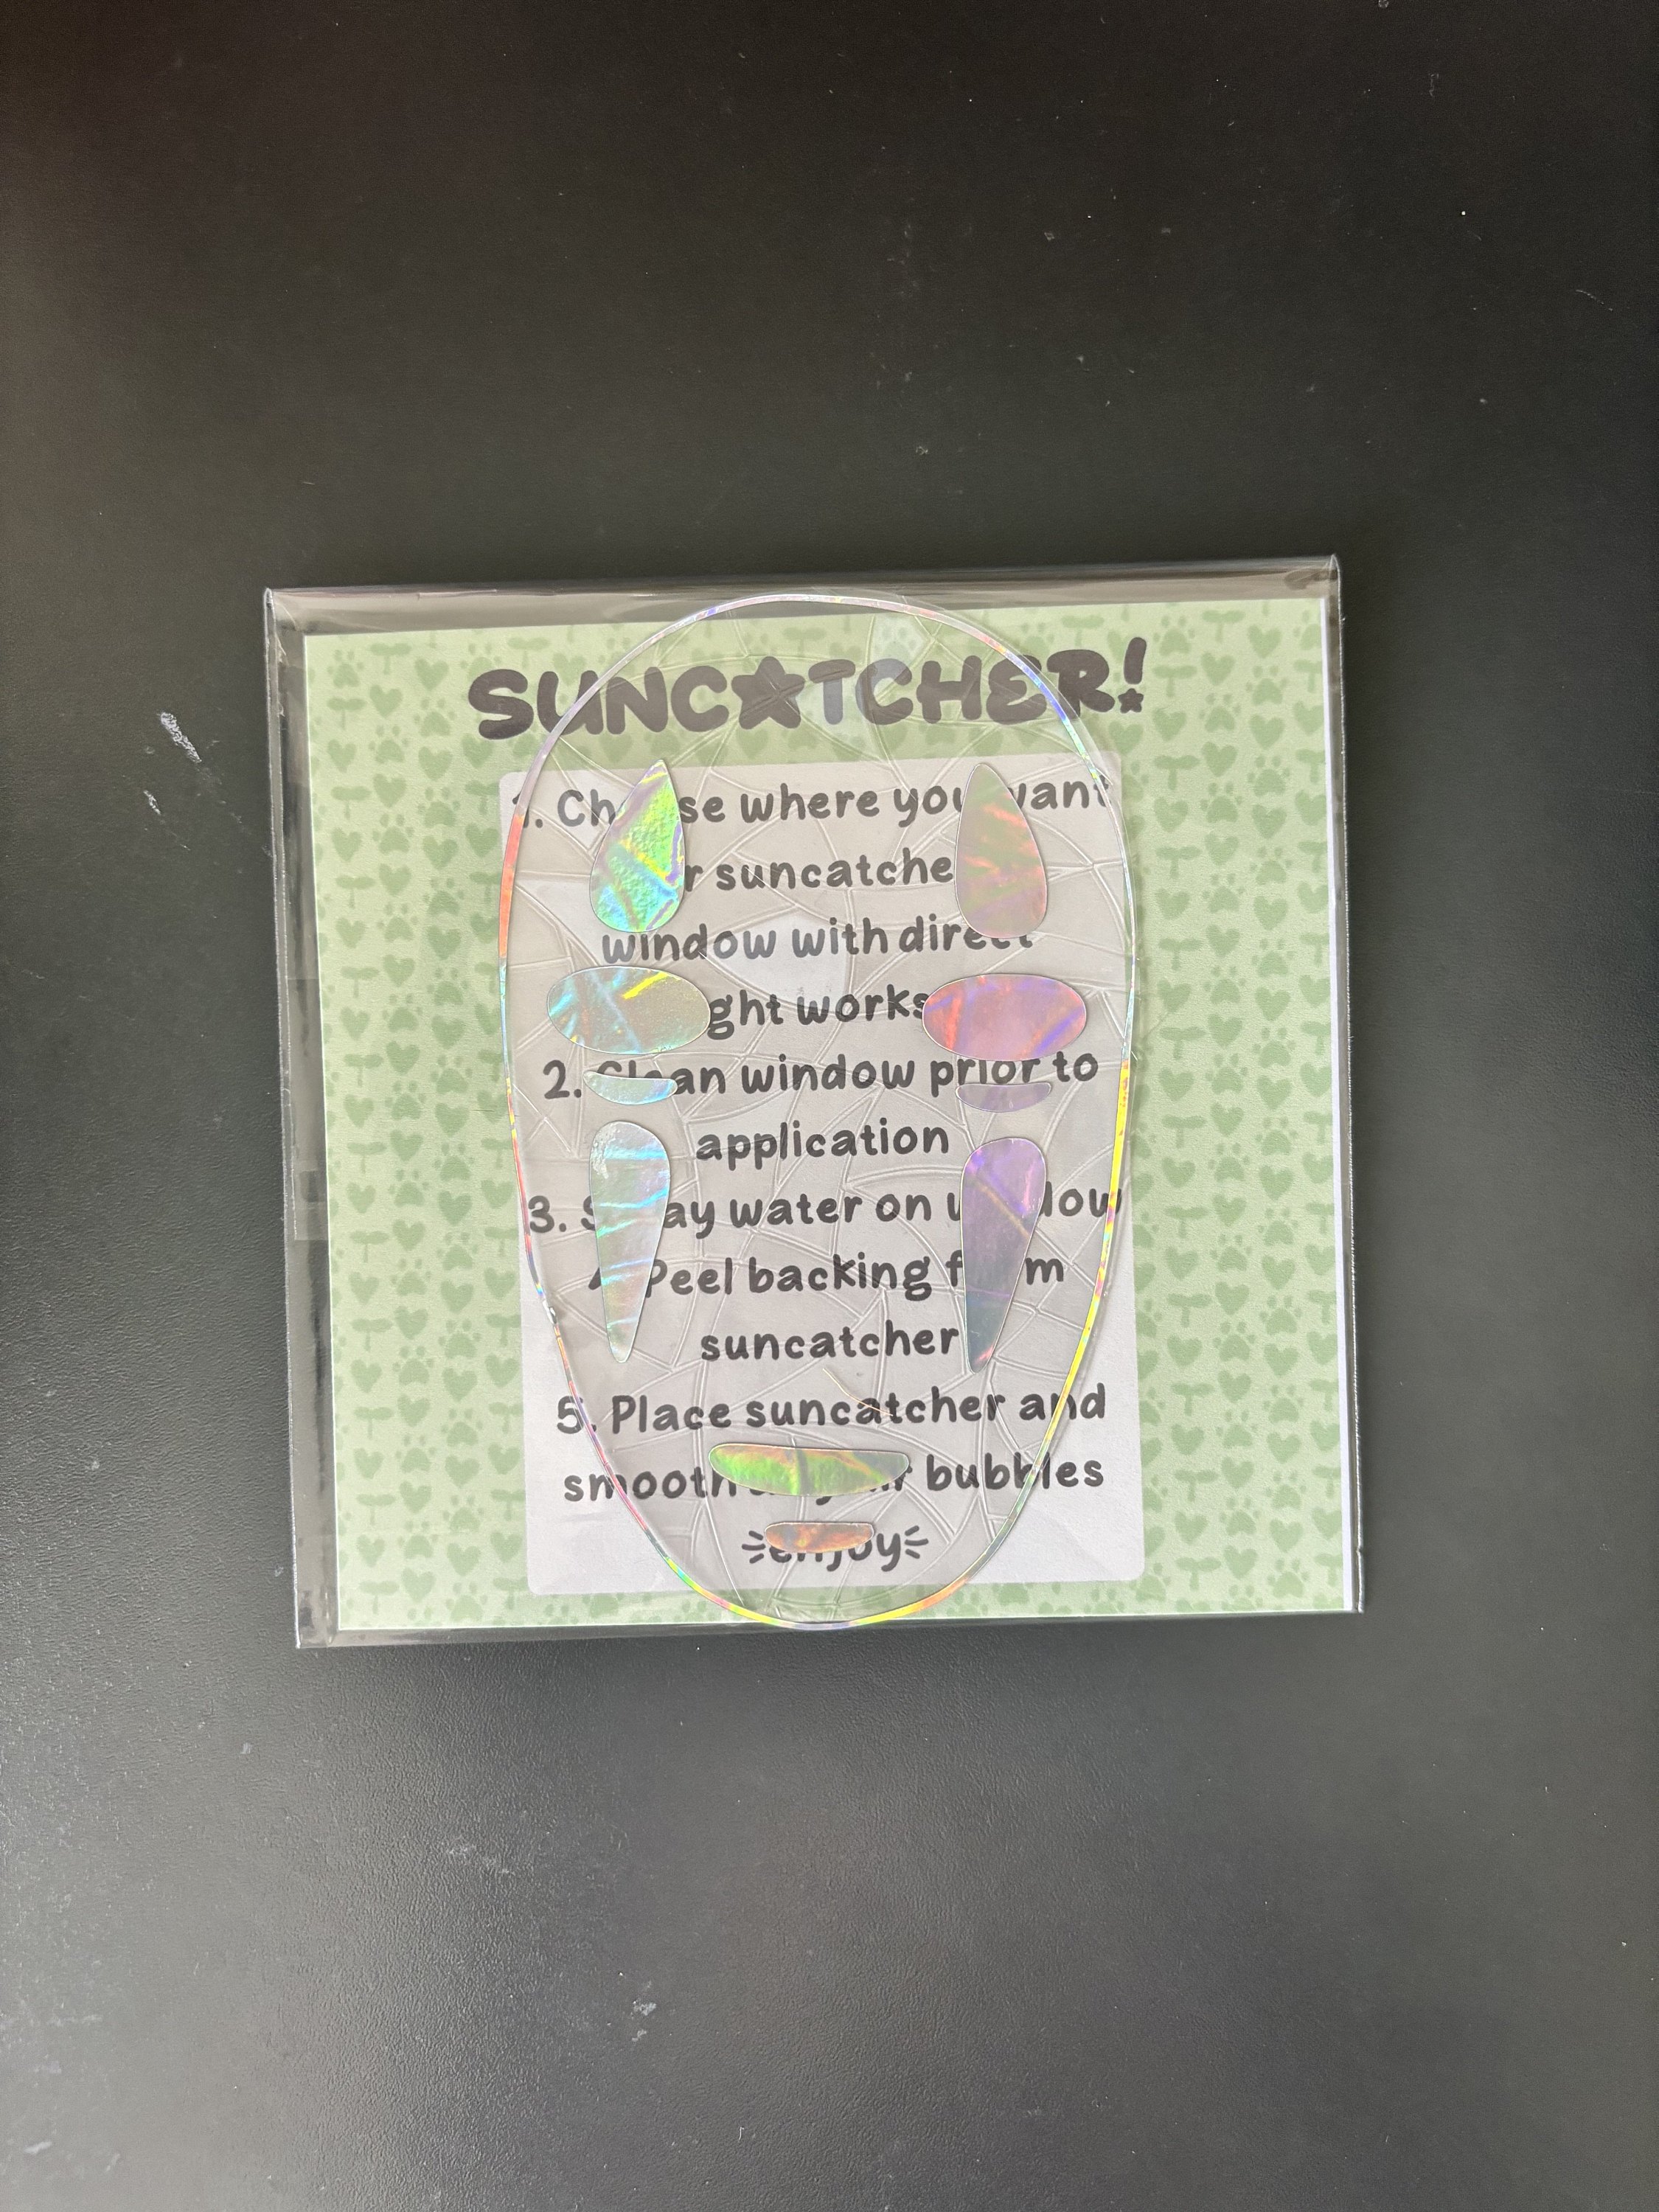 SUNCATCHER!
1. Choose where you want
suncatcher
window with direct
works
2. Clean window prior to
application
3. Spray water on window
4. Peel backing from
suncatcher
5. Place suncatcher and
smooth bubbles
enjoy